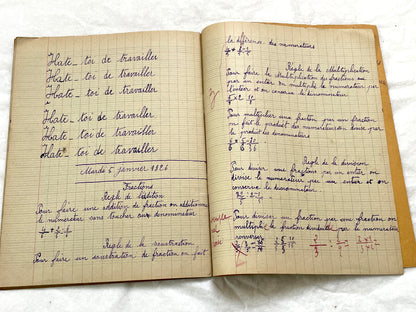 Hate-toi de travailler
Hate-toi de travailler
Hate-toi de travailler
Hate-toi de travailler
Hate-toi de travailler
Hate-toi de travailler
Mardi 5 janvier 1926
Fractions
Règle de l'addition
Pour faire une addition de fraction on additionne
le numérateur sans toucher aux dénominateur
Règle de la soustraction
Pour faire un soustraction de fraction on fait
la différence des numérateurs
Règle de la Multiplication
Pour faire la multiplication des fractions ou
par un entier on multiplie le numérateur par
l'entier et on conserve le dénominateur
Pour multiplier une fraction par une fraction
on fait le produit des numérateurs on divise par
le produit des dénominateurs
Règle de la division
Pour diviser une fraction par un entier on
divise le numérateur par un entier et on
conserve le dénominateur
Pour diviser un fraction par une fraction on
multiplie la fraction dividende par le numérateur
renversée